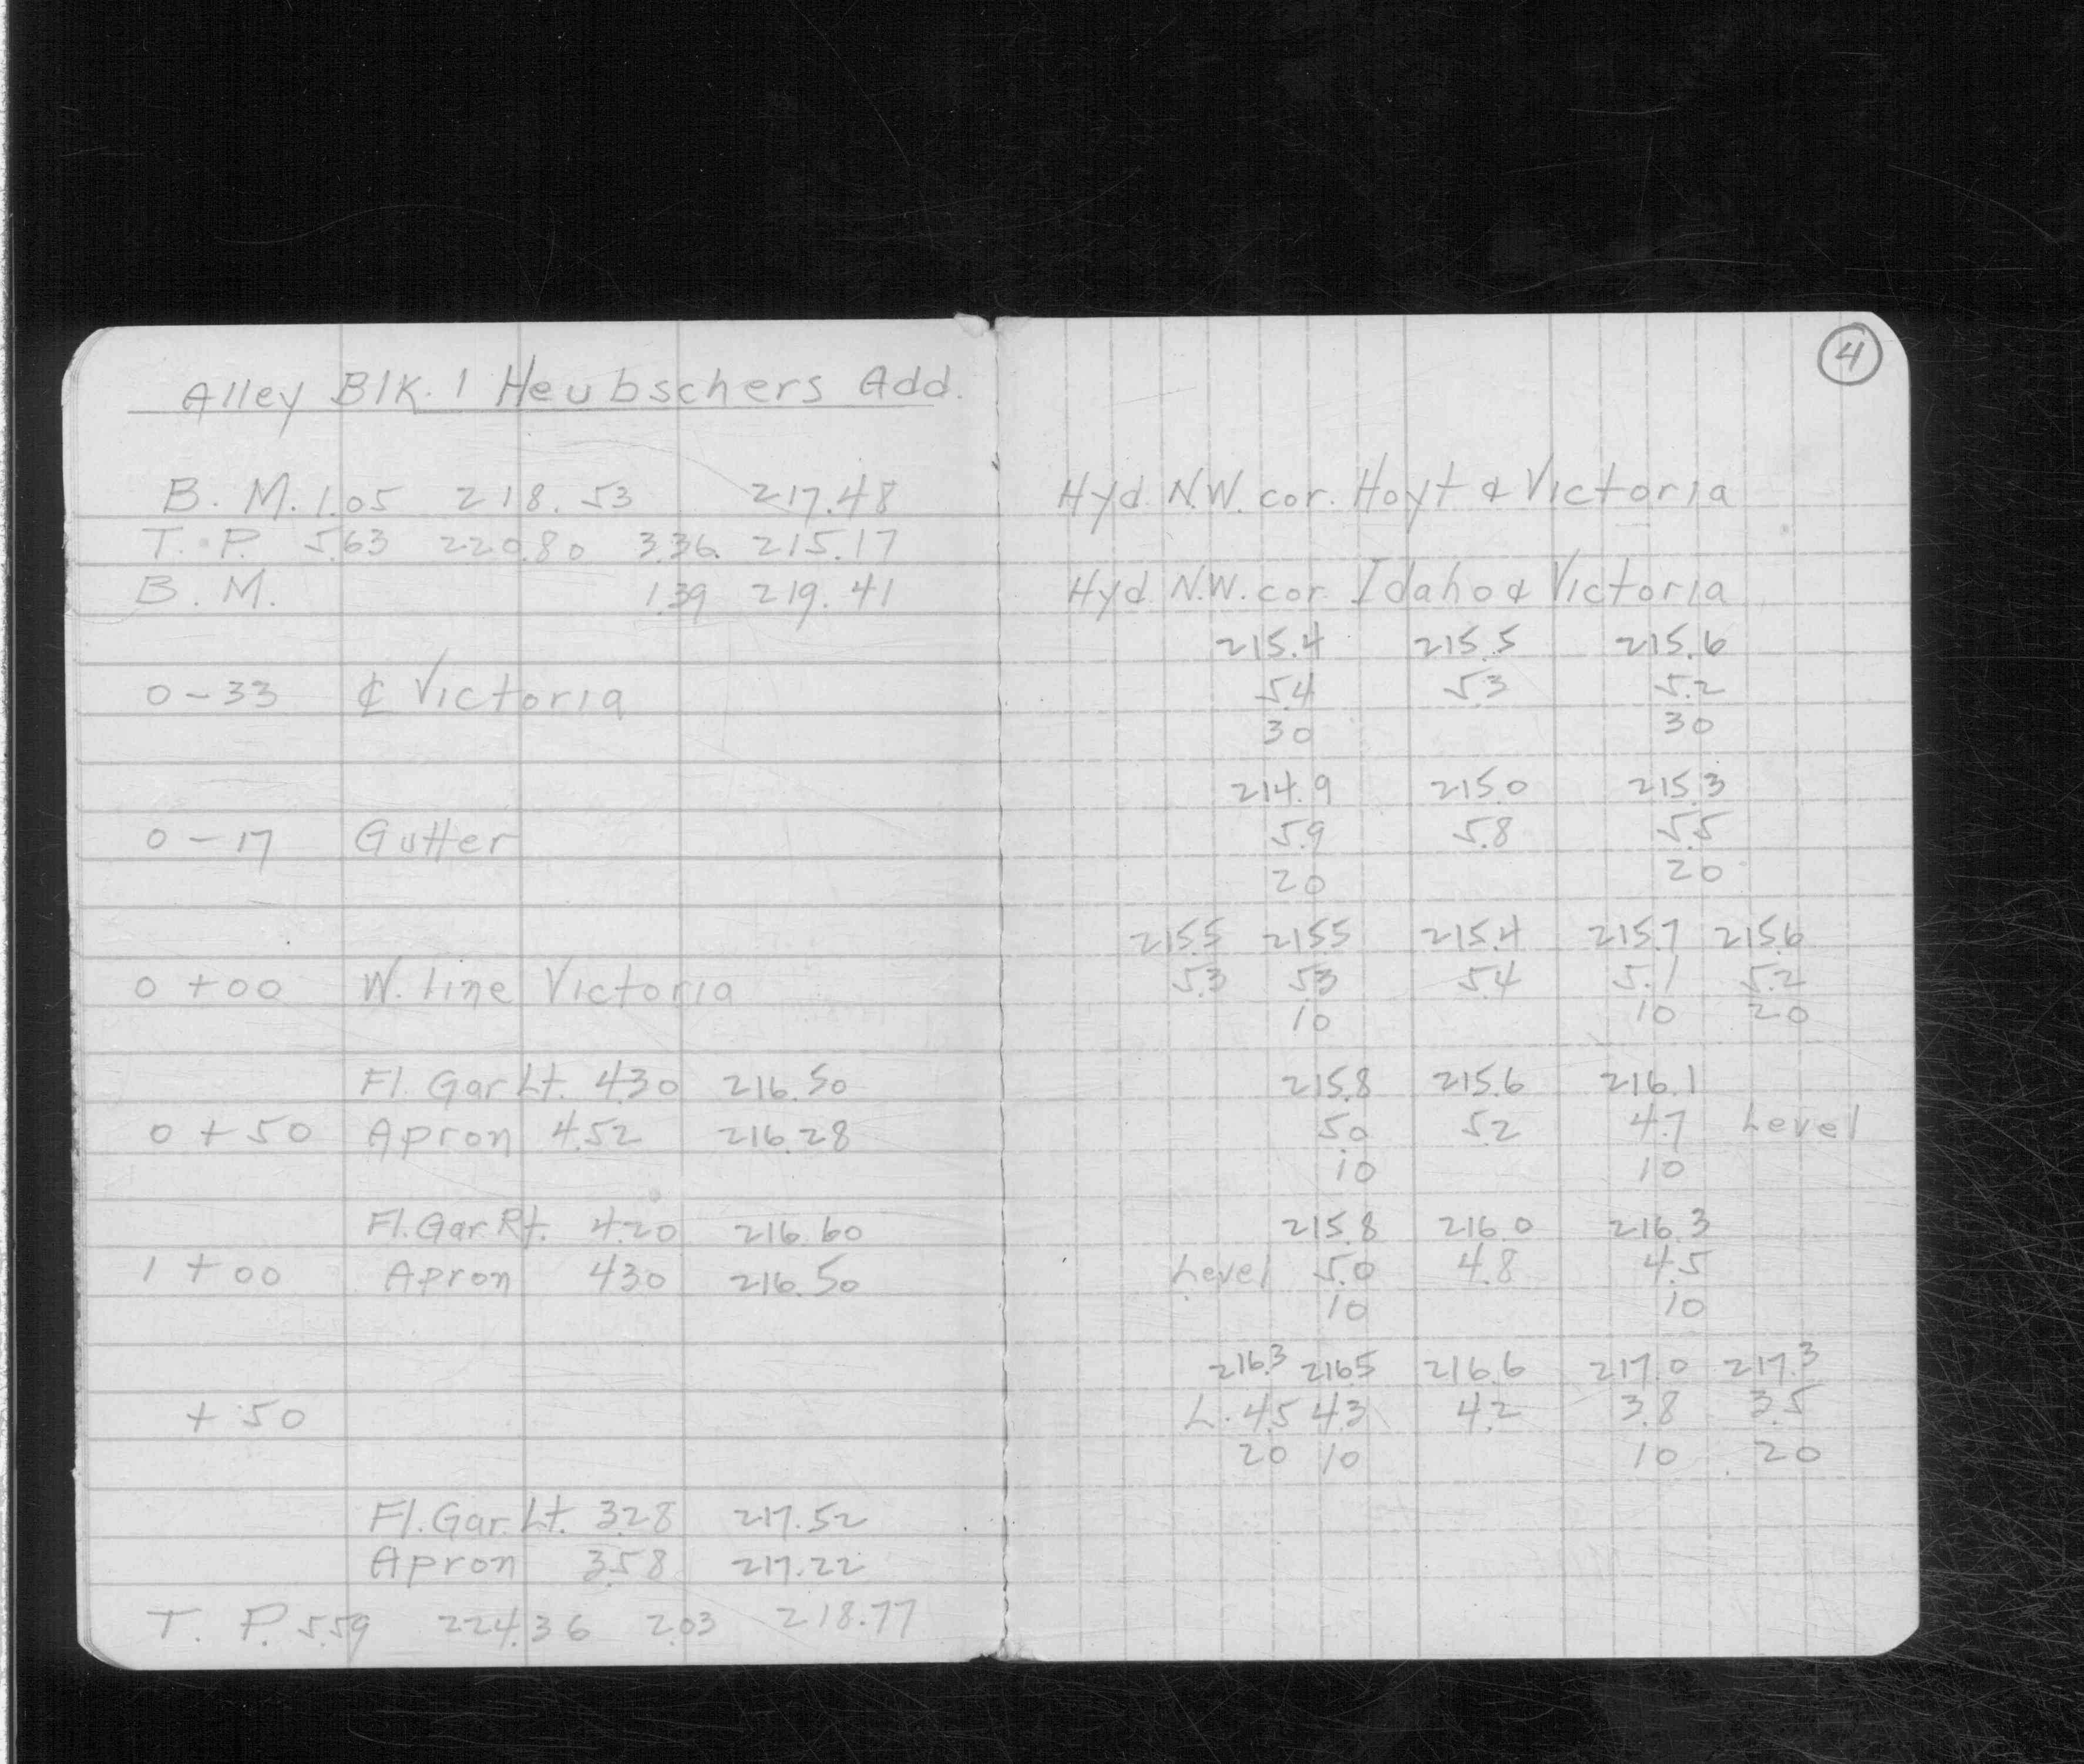 4
Alley Blk. 1 Heubschers Add.
B. M. 1.05 218.53 217.48 Hyd. N.W. cor. Hoyt & Victoria
T. P. 5.63 220.80 3.36 215.17
B. M. 1.39 219.41 Hyd. N.W. cor. Idaho & Victoria
215.4 215.5 215.6
0-33 ℄ Victoria 5.4 5.3 5.2
30 30
214.9 215.0 215.3
0-17 Gutter 5.9 5.8 5.5
20 20
215.5 215.5 215.4 215.7 215.6
0+00 W. line Victoria 5.3 5.3 5.4 5.1 5.2
10 10 20
Fl. Gar Lt. 4.30 216.50 215.8 215.6 216.1
0+50 Apron 4.52 216.28 5.0 5.2 4.7 Level
10 10
Fl. Gar. Rt. 4.20 216.60 215.8 216.0 216.3
1+00 Apron 4.30 216.50 Level 5.0 4.8 4.5
10 10
216.3 216.5 216.6 217.0 217.3
+50 L. 4.5 4.3 4.2 3.8 3.5
20 10 10 20
Fl. Gar. Lt. 3.28 217.52
Apron 3.58 217.22
T. P. 5.59 224.36 2.03 218.77